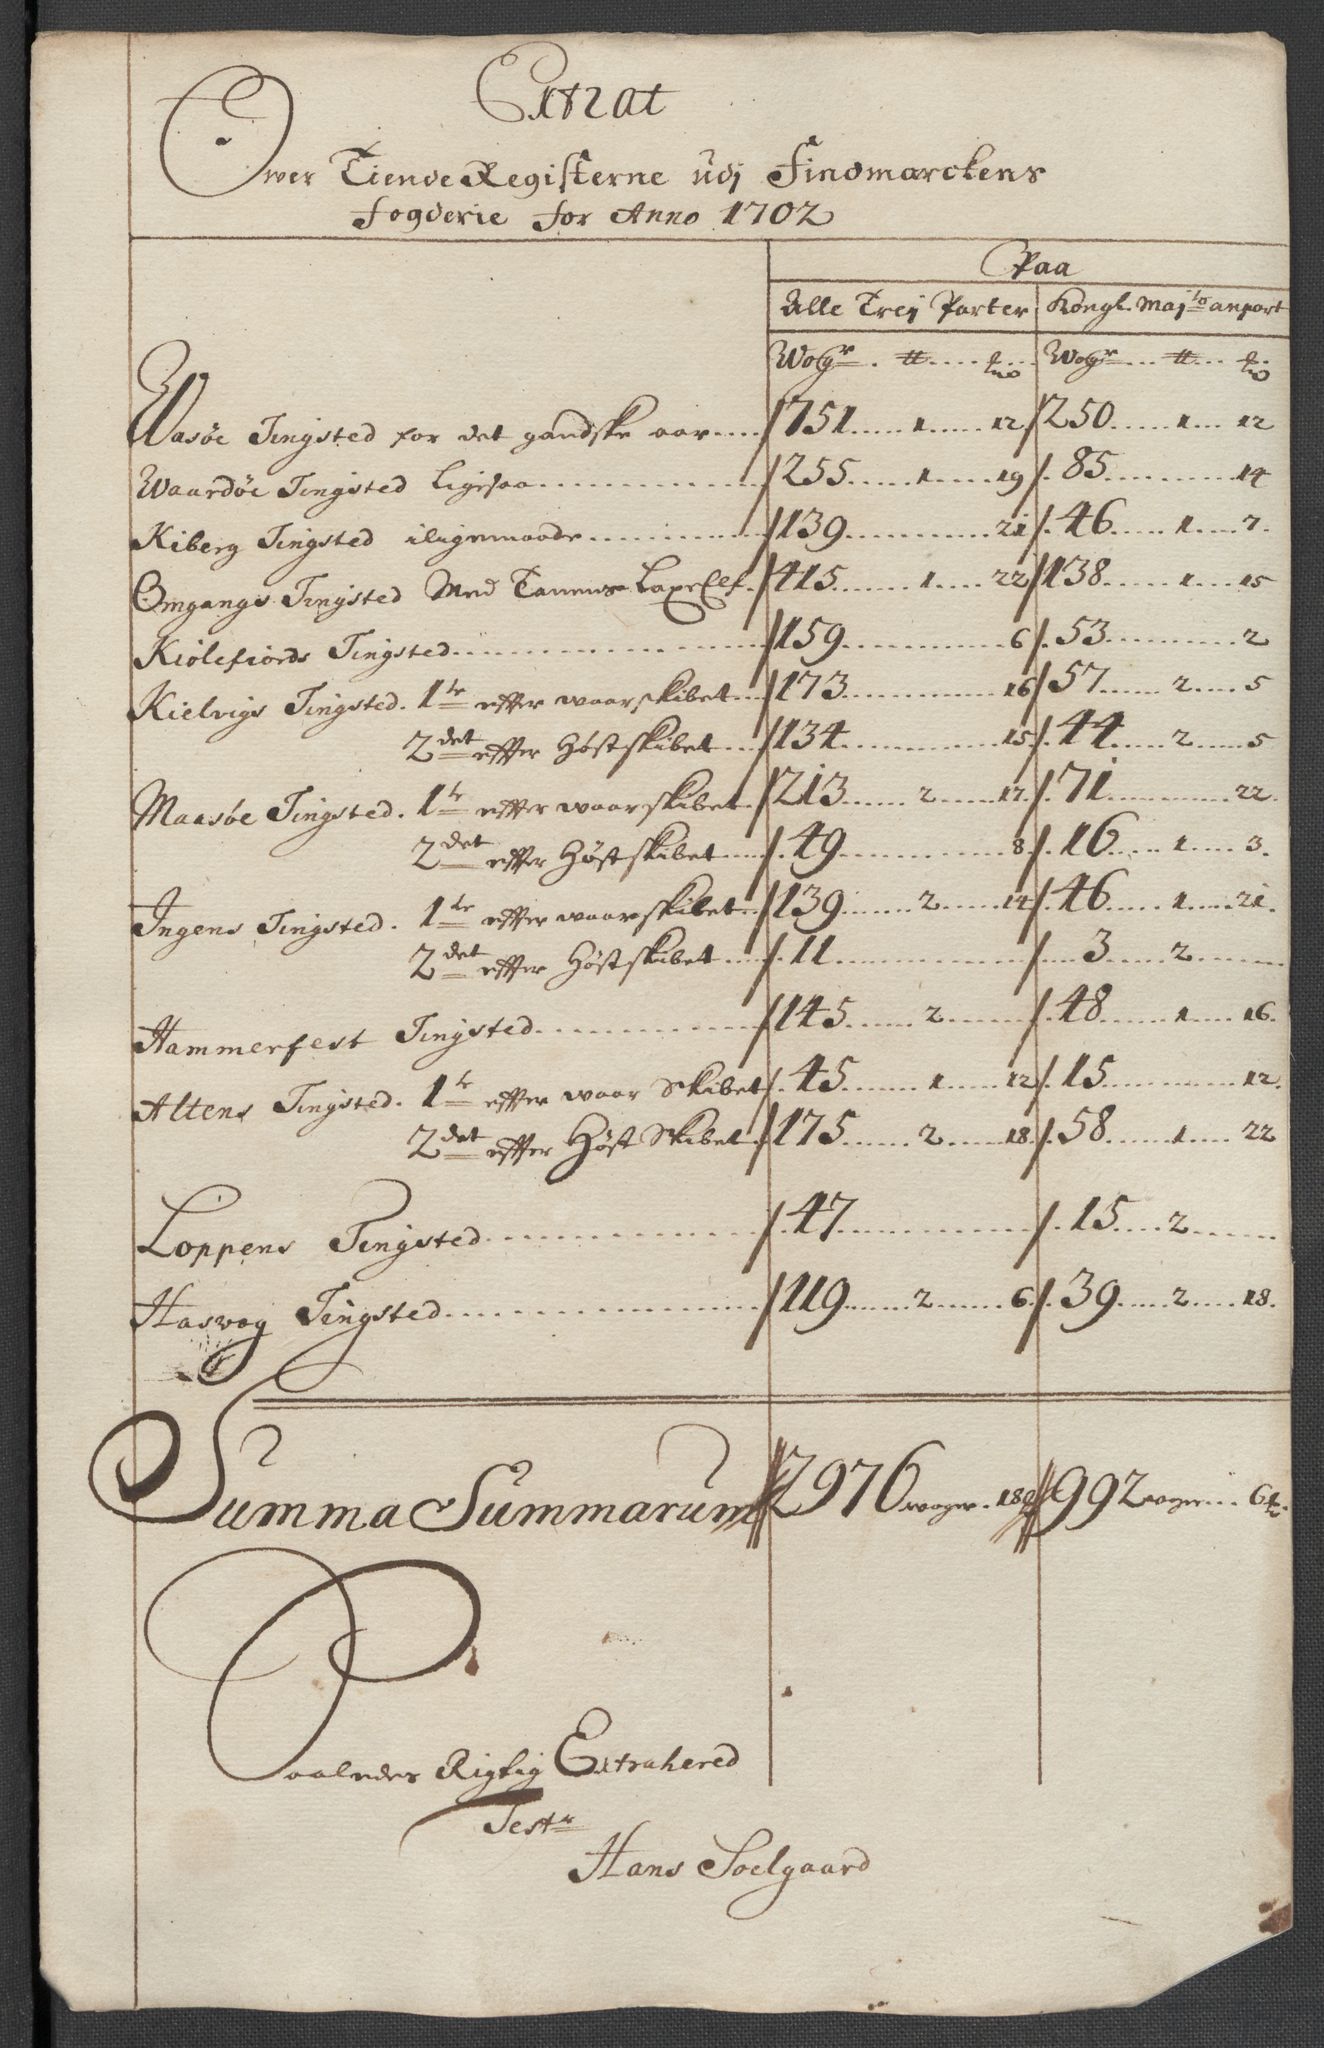 Extrat
Over TiendeRegisterne udj Findmarckens
fogderie for Anno 1702
Paa
Alle Treij Parter Kongl. Maj:ts anpart
Wogr ℔ Wogr ℔
Wasöe Tingsted for det gandske aar 751 1 12 250 1 12
Waardöe Tingsted Ligesaa 255 1 19 85 14
Kiberg Tingsted iligemaade 139 21 46 1 7
Omgangs Tingsted Med Tanens LaxeElf 415 1 22 138 1 15
Kiölefiords Tingsted 159 6 53 2
Kielvigs Tingsted. 1te effter waarskibet 173 16 57 2 5
2det effter Höstskibet 134 15 44 2 5
Maasöe Tingsted. 1te effter waarskibet 213 2 17 71 22
2det effter Höstskibet 49 8 16 1 3
Ingens Tingsted. 1te effter waarskibet 139 2 14 46 1 21
2det effter Höstskibet 11 3 2
Hammerfest Tingsted 145 2 48 1 16
Altens Tingsted. 1te effter waar Skibet 45 1 12 15 12
2det effter Höst Skibet 175 2 18 58 1 22
Loppens Tingsted 47 15 2
Hasvog Tingsted 119 2 6 39 2 18
Summa Summarum 2976 woger 18 992 woger 6
Saaledes Rigtig Extrahered
Test:
Hans Soelgaard